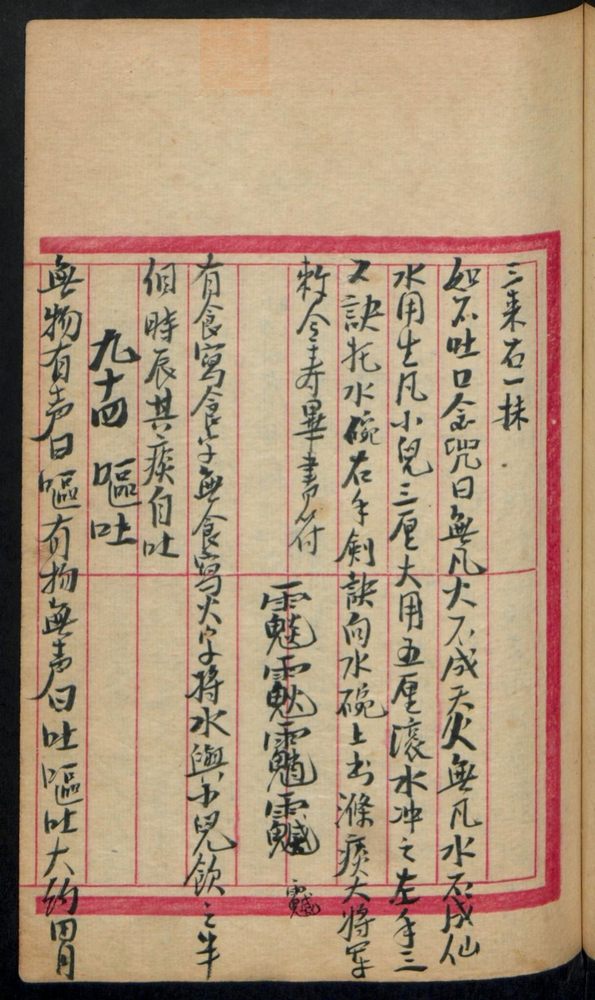 三来右一抹
如不吐口念咒曰無凡火不成天火無凡水不成仙
水用生凡小兒三厘大用五厘滾水冲之左手三
又訣托水碗右手劍訣向水碗上书滌痰大將軍
敕令寿畢書符
有食寫食字無食寫火字將水與小兒飲之半
個時辰其痰自吐
九十四 嘔吐
無物有声曰嘔有物無声曰吐嘔吐大約胃